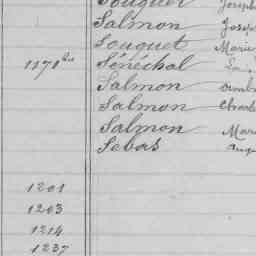 Souquet Joseph
Salmon Joseph
Souquet Marie
1171 bis Sénéchal
Salmon Amb
Salmon Charl
Salmon Mari
Sebas Aug
1201
1203
1214
1237